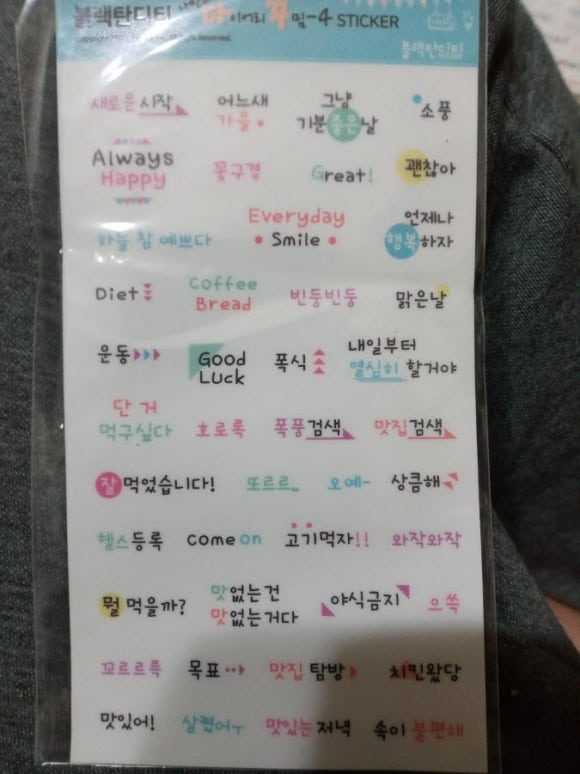 블랙탄디티 다이어리 꾸밈-4 STICKER
Reserved.
블랙탄디티
새로운 시작 어느새 가을 그냥 기분좋은날 소풍
Always Happy 꽃구경 Great! 괜찮아
하늘 참 예쁘다 Everyday Smile 언제나 행복하자
Diet Coffee Bread 빈둥빈둥 맑은날
운동 Good Luck 폭식 내일부터 열심히 할거야
단 거 먹구싶다 호로록 폭풍검색 맛집검색
잘 먹었습니다! 또르르... 오예~ 상큼해
헬스등록 come on 고기먹자!! 와작와작
뭘 먹을까? 맛없는건 맛없는거다 야식금지 으쓱
꼬르르륵 목표 맛집 탐방 치킨왔당
맛있어! 살쪘어ㅜ 맛있는 저녁 속이 불편해